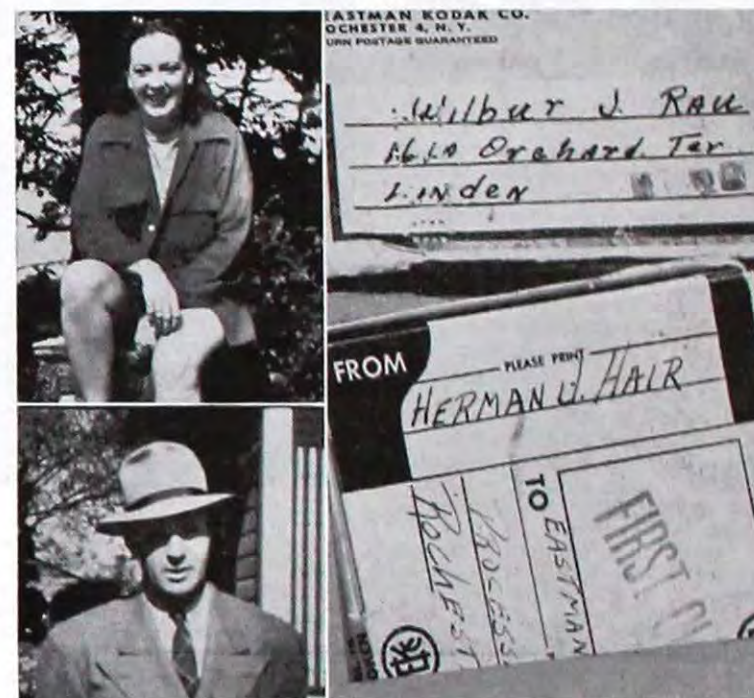 EASTMAN KODAK CO.
OCHESTER 4, N. Y.
URN POSTAGE GUARANTEED
Wilbur J. RAU
Orchard Ter
LiNdeN
FROM
PLEASE PRINT
HERMAN J. HAIR
TO EASTMAN
PROCESS
ROCHEST
FIRST CL